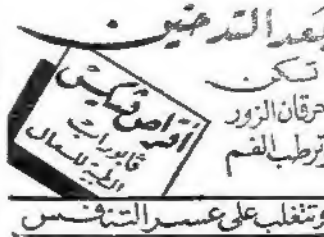 بعد التدخين
تسكن
حرقان الزور
وترطب الفم
أقراص تسكين
ڤابورات
الطبية للسعال
وتتغلب على عسر التنفس